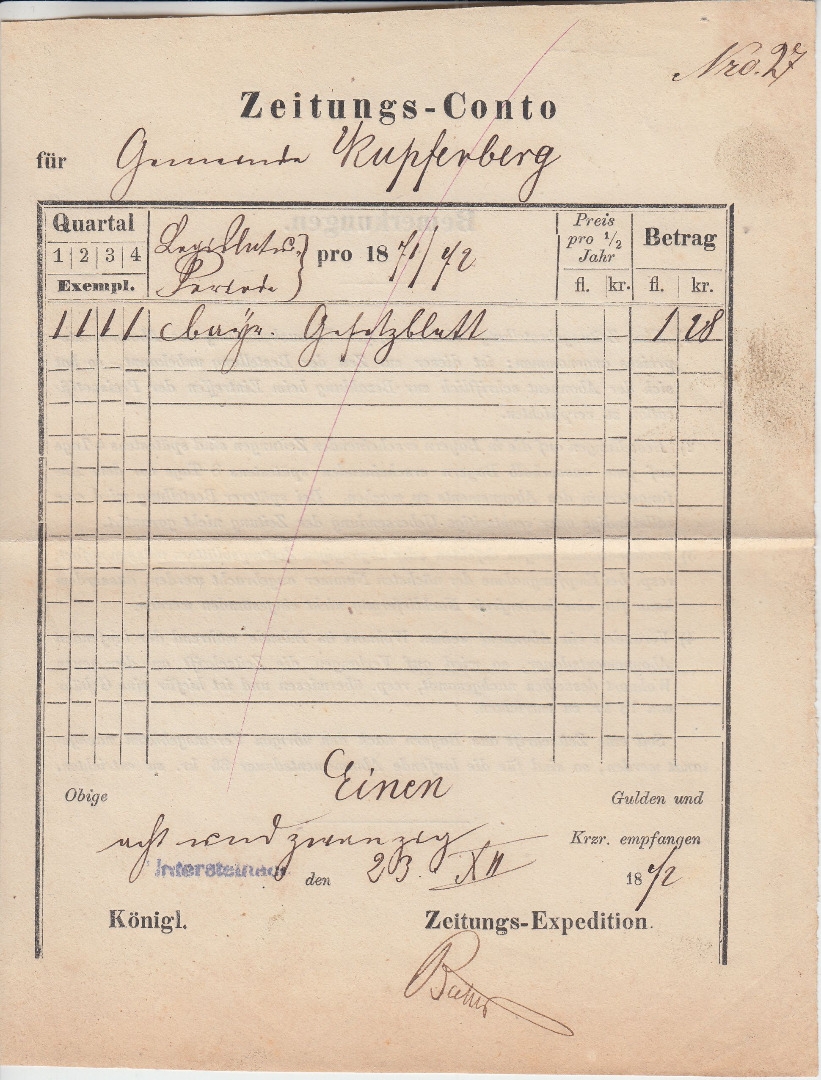 Nro. 27
Zeitungs-Conto
für Gemeinde Kupferberg
Quartal
1 2 3 4
Exempl.
Legislatur
Periode
pro 1871/72
Preis
pro 1/2
Jahr
fl. kr.
Betrag
fl. kr.
1 1 1 1 bayr. Gesetzblatt 1 28
Obige Einen Gulden und
acht und zwanzig Krzr. empfangen
den 23. XII 1872
Königl. Zeitungs-Expedition.